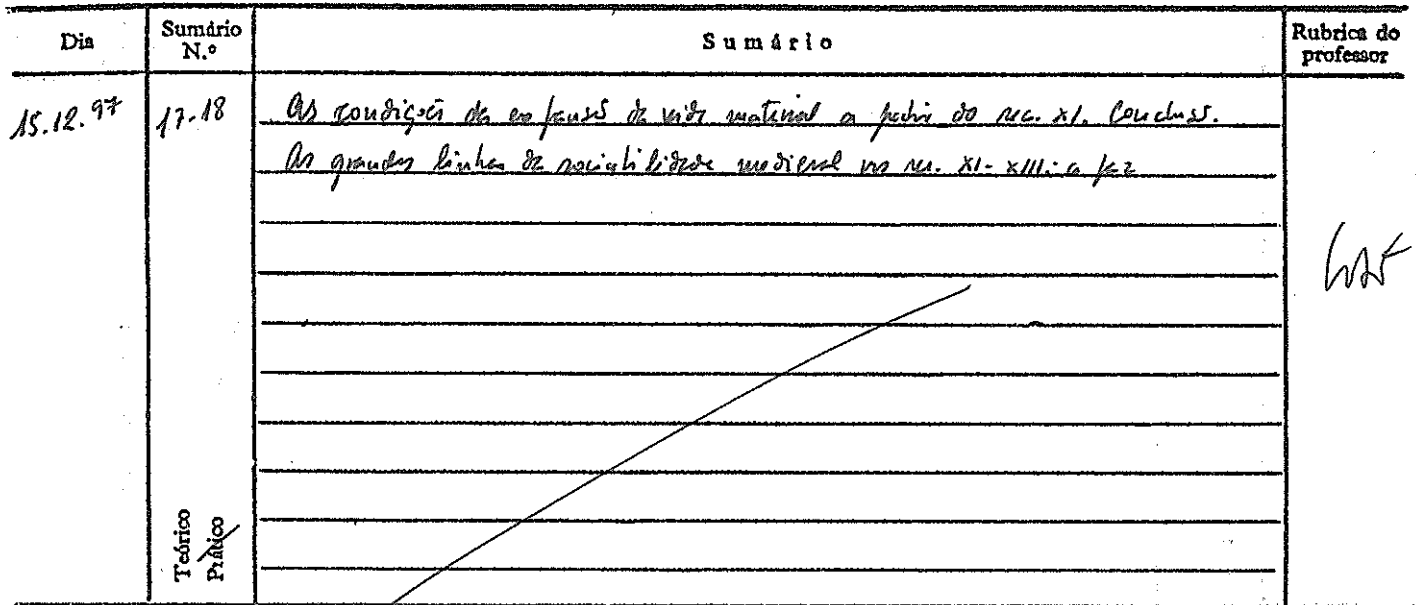 Dia
Sumário N.º
Sumário
Rubrica do professor
15.12.97
17-18
As condições da expansão da vida material a partir do sec. XI. Conclusão.
As grandes linhas da sociabilidade medieval nos sec. XI-XIII: a paz
Teórico
Prático